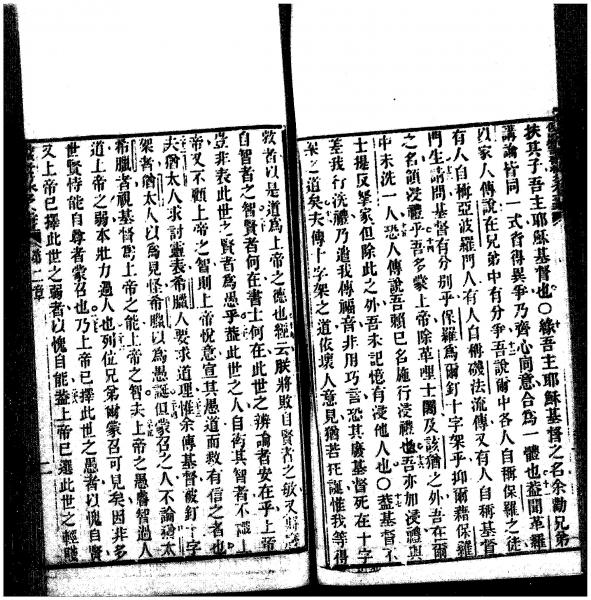 扶其子吾主耶穌基督也〇緣吾主耶穌基督之名余勸兄弟
講論皆同一式毋得異爭乃齊心同意合為一體也蓋聞革羅
以家人傳說在兄弟中有分爭吾說爾中各人自稱保羅之徒
有人自稱亞波羅門人有人自稱磯法流傳又有人自稱基督
門生請問基督有分別乎保羅爲爾釘十字架乎抑爾藉保羅
之名領浸禮乎吾多蒙上帝除革哩士闊及該猶之外吾在爾
中未洗一人恐人傳說吾賴己名施行浸禮也吾亦加浸禮與
士提反輩家但除此之外吾未記憶有浸他人也〇蓋基督不
差我行洗禮乃遣我傳福音非用巧言恐其廢基督死在十字
架之道矣夫傳十字架之道依壞人意見猶若狂誕惟我等得
救者以是道爲上帝之德也經云朕將敗自賢者之敏又將
自智者之智賢者何在書士何在此世之辨論者安在乎上帝
豈非表此世之賢者爲愚乎蓋此世之人自衒其智者不識上
帝又不顧上帝之智則上帝悅意宣其愚道而救有信之者也
夫猶太人求討靈表希臘人要求道理惟余傳基督被釘十字
架者猶太人以爲見怪希臘以爲愚誕但蒙召之人不論猶太
希臘者視基督爲上帝之能上帝之智夫上帝之愚勝智過人
道上帝之弱本壯力過人也列位兄弟爾蒙召可見矣因非多
世賢恃能自尊者蒙召也乃上帝已擇此世之愚者以愧自賢
又上帝已擇此世之弱者以愧自能蓋上帝已選此世之輕賤
第一章